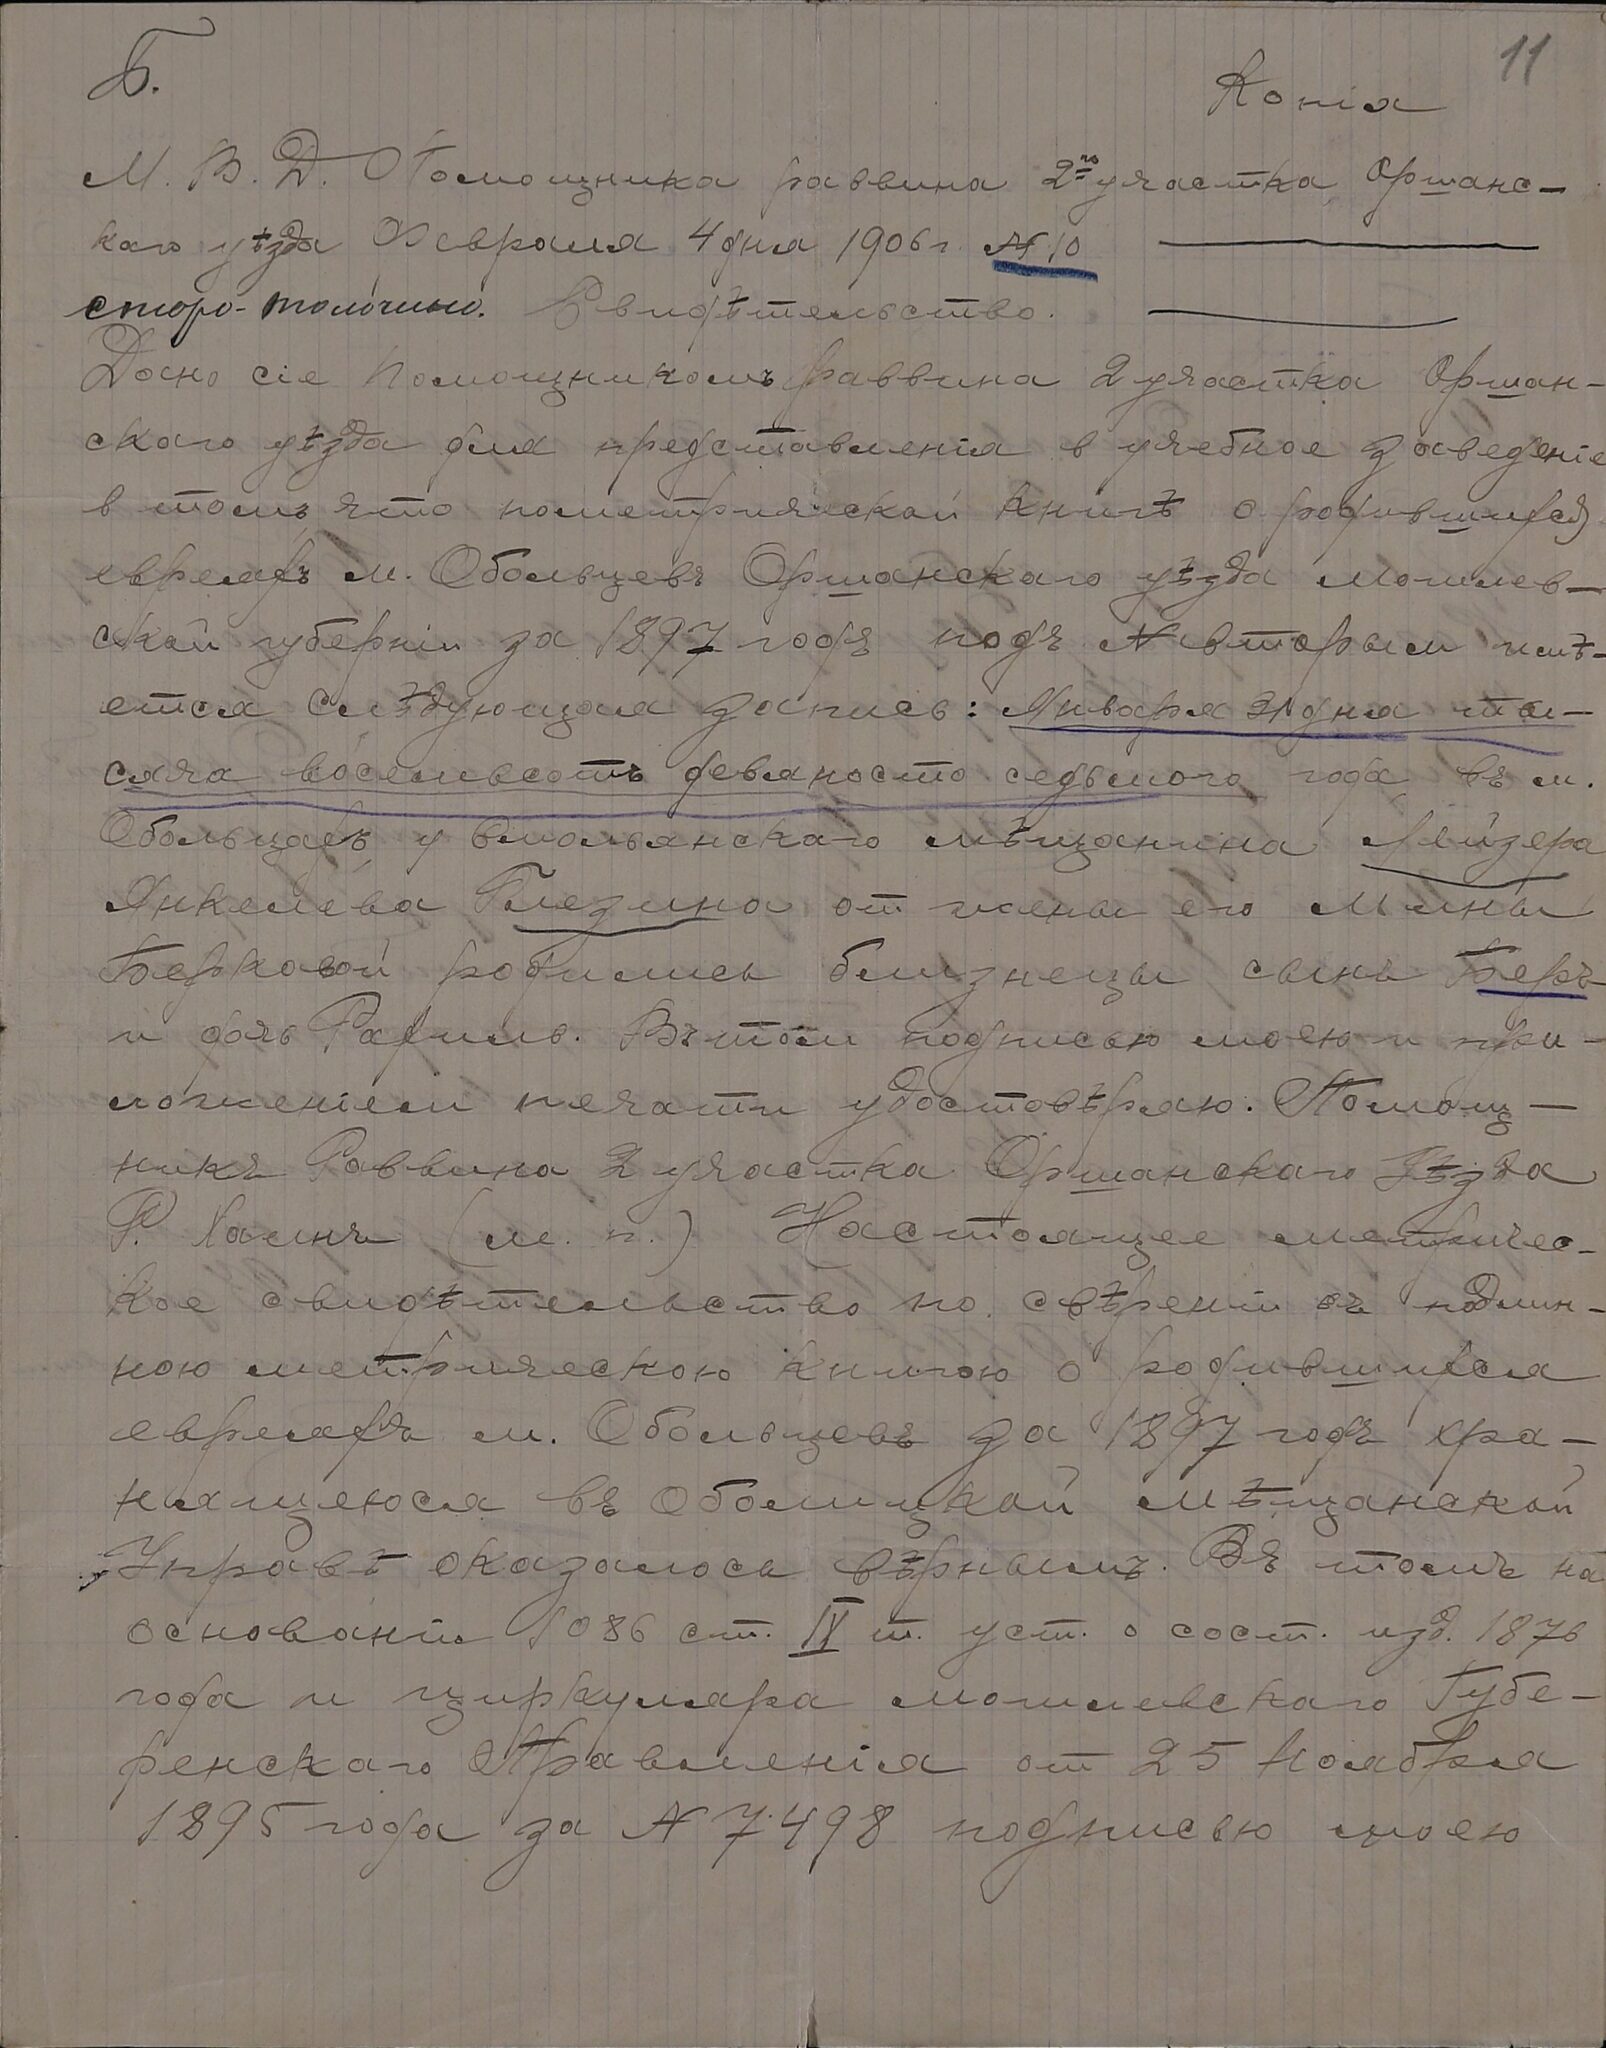 Б.
11
Копія
М. В. Д. Помощника раввина 2го участка Оршанс-
каго уѣзда Февраля 4 дня 1906 г. № 10
старо-толочино. Свидѣтельство.
Дано сіе Помощникомъ раввина 2 участка Оршан-
скаго уѣзда для представленія в учебное заведеніе
в томъ что пометрической книгѣ о родившихся
евреяхъ м. Обольцевъ Оршанскаго уѣзда могилев-
ской губерніи за 1897 годъ подъ № вторым имѣ-
ется слѣдующая запись: Января 31 дня ты-
сяча восемьсотъ девяносто седьмого года въ м.
Обольцахъ у Смольянскаго мѣщанина Лейзера
Янкелева Глезина от жены его Мины
Берковой родились близнецы сынъ Беръ
и дочь Рахиль. Въ том подписью моею и при-
ложеніем печати удостовѣряю. Помощ-
никъ Раввина 2 участка Оршанскаго Уѣзда
Р. Хаинъ (м. п.) Настоящее метричес-
кое свидѣтельство по свѣреніи съ подлин-
ною метрическою книгою о родившихся
евреяхъ м. Обольцевъ за 1897 годъ хра-
нящеюся въ Оболицкой мѣщанской
Управѣ оказалось вѣрнымъ. Въ томъ на
основаніи 1086 ст. IX т. уст. о сост. изд. 1876
года и циркуляра могилевскаго Губе-
ренскаго Правленія от 25 Ноября
1895 года за № 7498 подписью моею